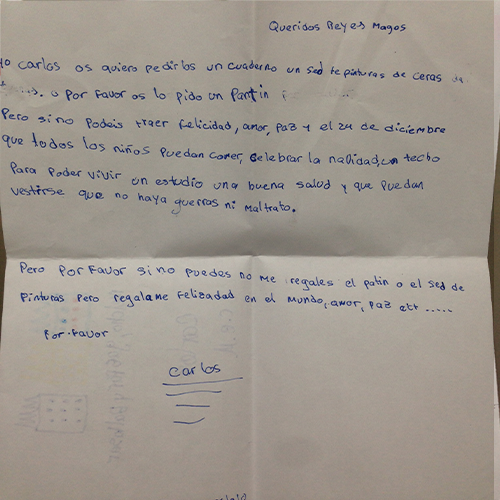 Queridos Reyes Magos
Yo Carlos os quiero pedirlos un cuaderno un sed te pinturas de ceras
o por favor os lo pido un Pantin
Pero si no Podeis traer felicidad, amor, Paz y el 24 de diciembre
que todos los niños puedan comer, celebrar la navidad, un techo
Para Poder vivir un estudio una buena salud y que Puedan
vestirse que no haya guerras ni Maltrato.
Pero Por Favor si no puedes no me regales el patin o el sed de
Pinturas Pero regalame Felizadad en el mundo, amor, Paz ett .....
Por Favor
Carlos